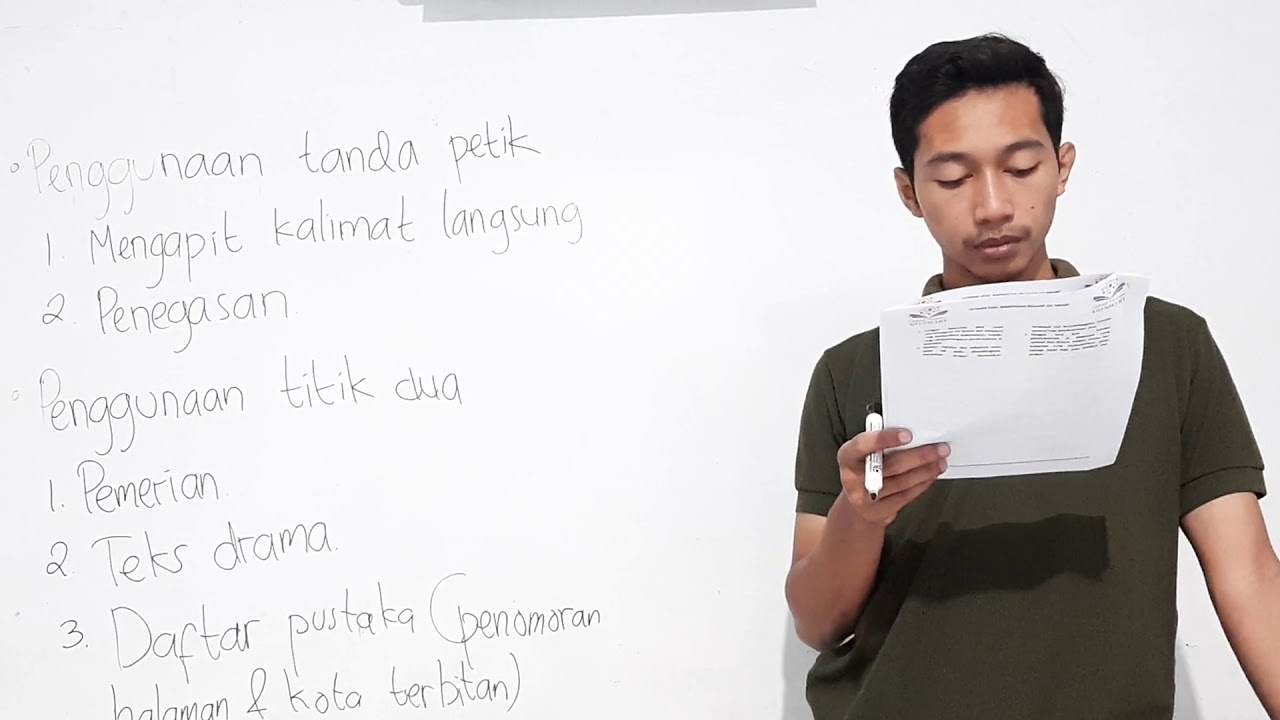 Penggunaan tanda petik
1. Mengapit kalimat langsung
2. Penegasan
Penggunaan titik dua
1. Pemerian
2. Teks drama.
3. Daftar pustaka (penomoran
halaman & kota terbitan)